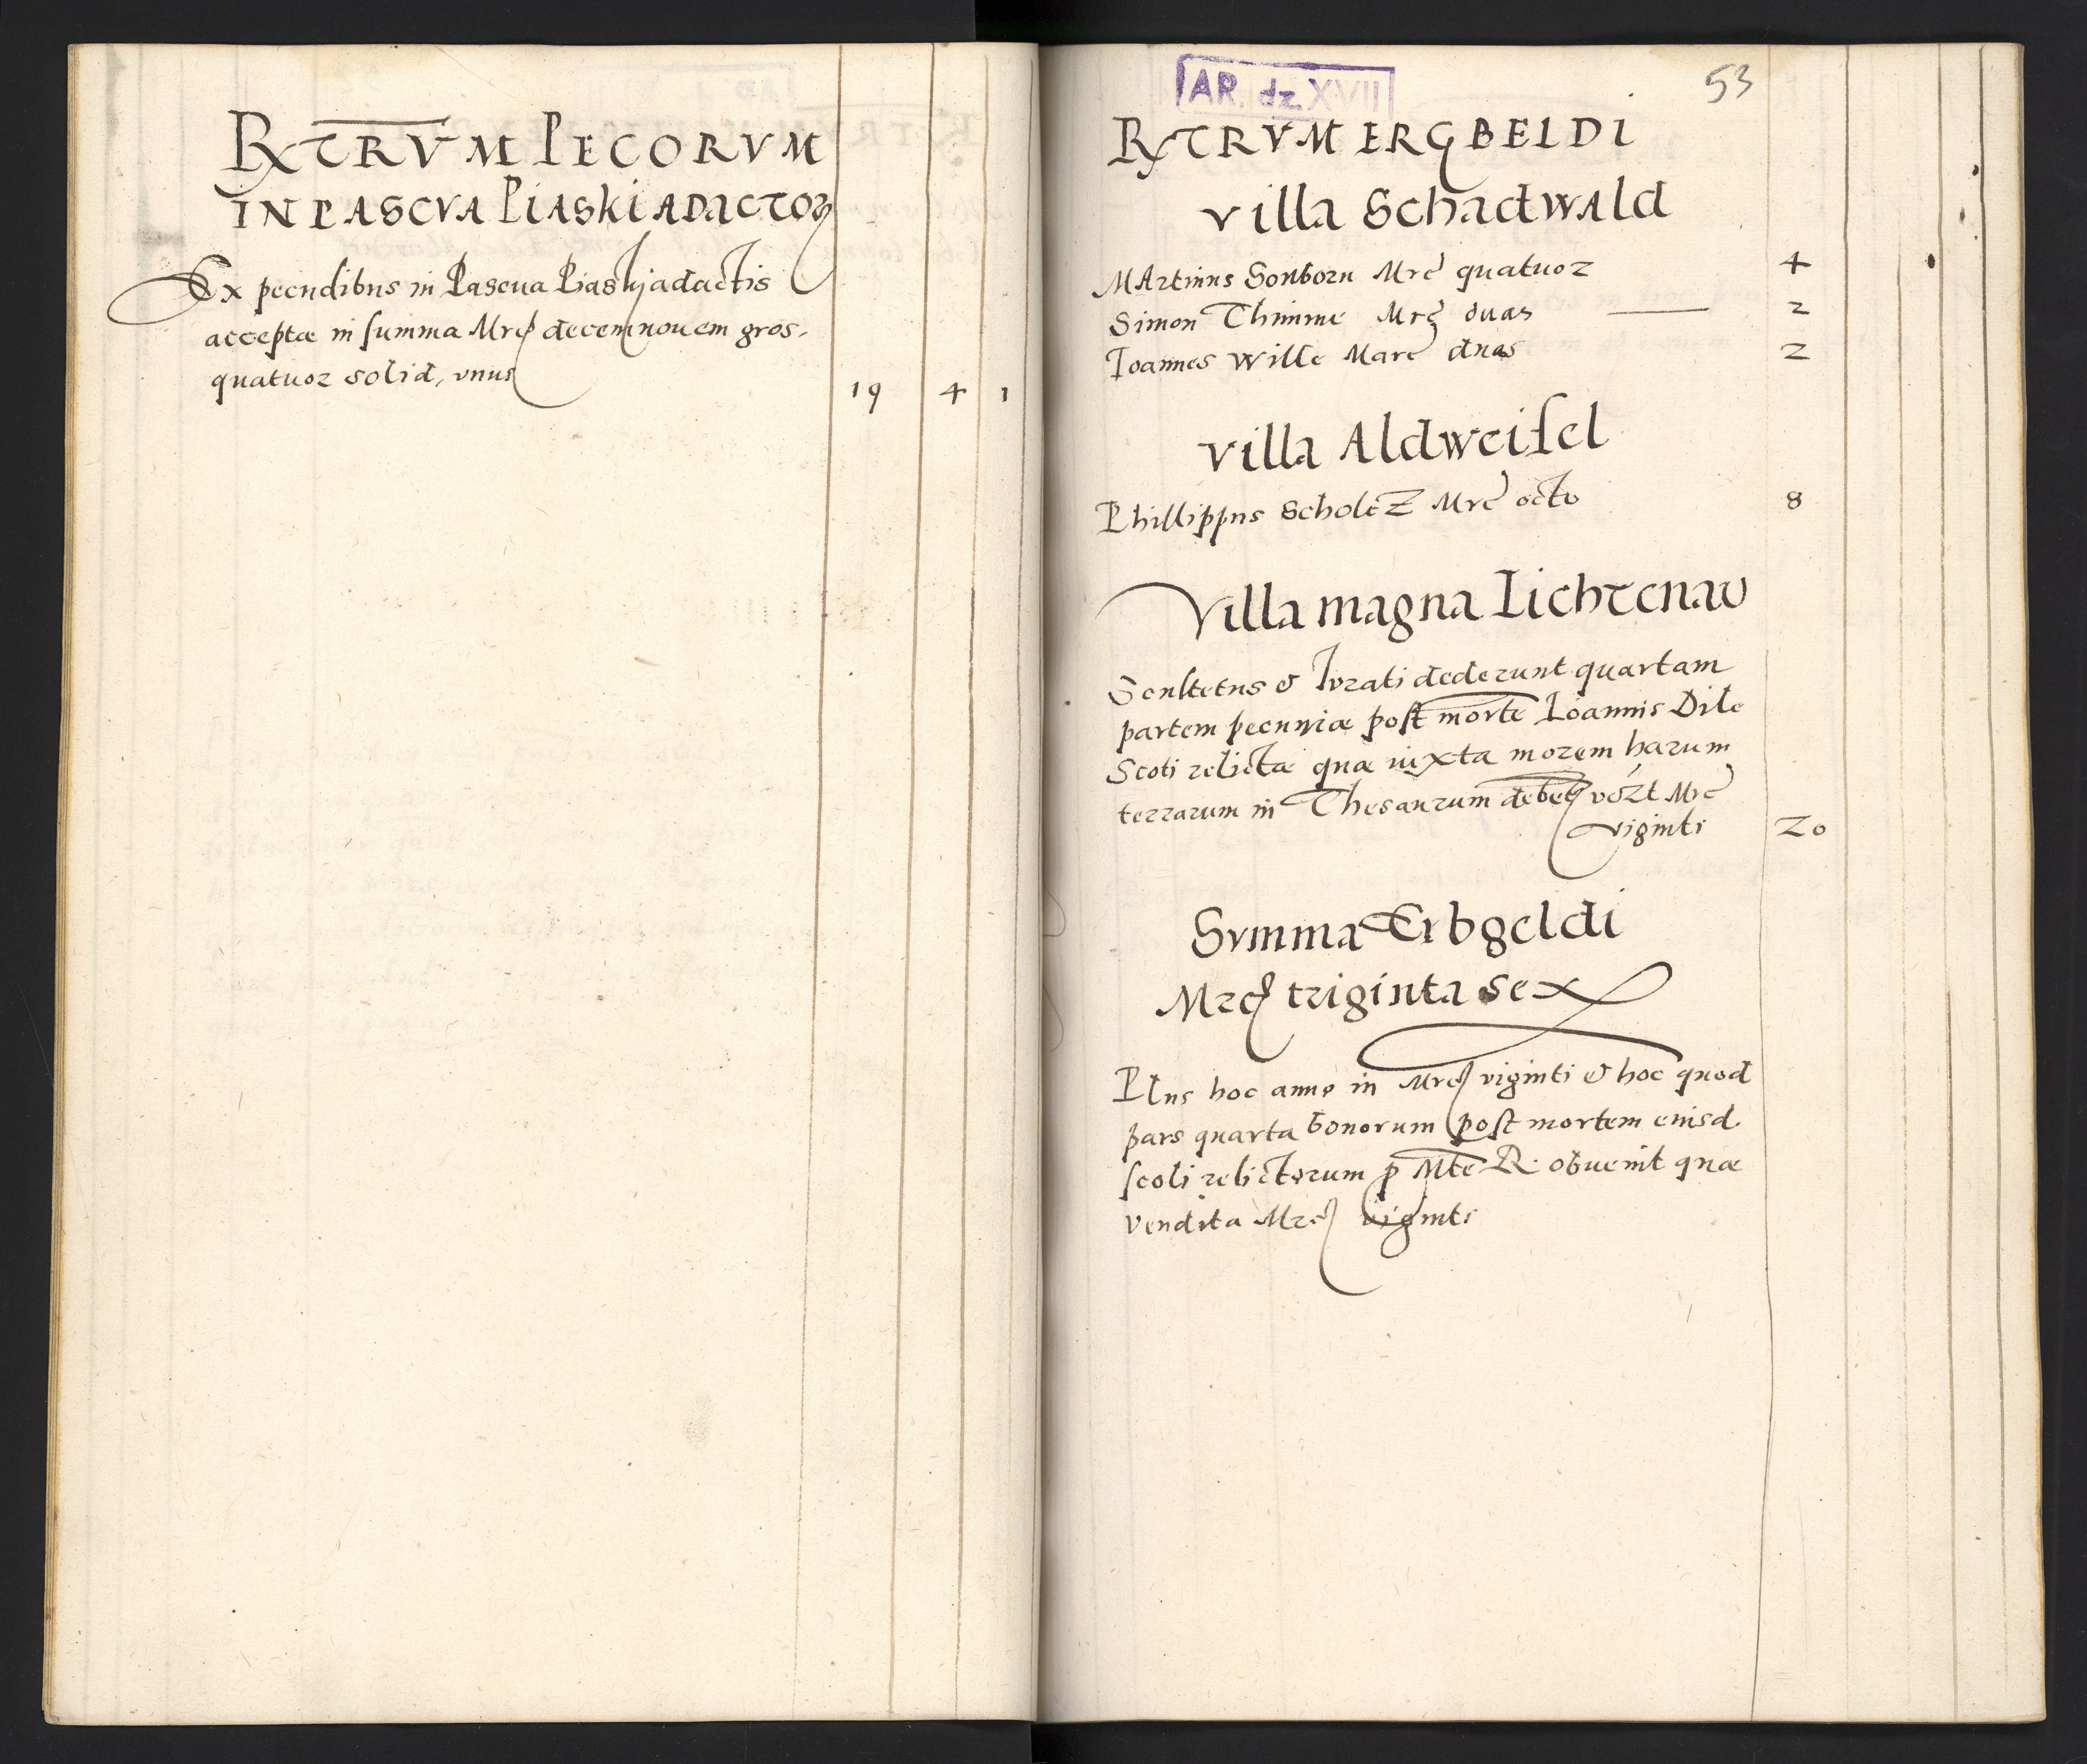 RX̅TRVM PECORVM
IN PASCVA PIASKI ADACTOꝝ
Ex pecudibus in Pascua Piaskj adactis
acceptæ in summa Mrc̃ decem nouem gros.
quatuor solid, vnus
19 4 1
AR. dz. XVII
53
RXTRVM ERGBELDI
villa Schadwald
Martinus Sonborn Mrc̃ quatuor 4
Simon Thimme Mrc̃ duas 2
Ioannes Wille Marc̃ duas 2
villa Aldweisel
Phillippus Scholcz Mrc̃ octo 8
Villa magna Lichtenaw
Scultetus & Iurati dederunt quartam
partem pecuniæ post mortē Ioannis Dile
Scoti relictæ quæ iuxta morem harum
terrarum in Thesaurum debet Mrc̃
viginti 20
Summa Erbgeldi
Mrc̃ triginta sex
Plus hoc anno in Mrc̃ viginti & hoc quod
pars quarta bonorum post mortem euisd.
scoti relictorum ꝓ Mte R. obuenit quæ
vendita Mrc̃ viginti